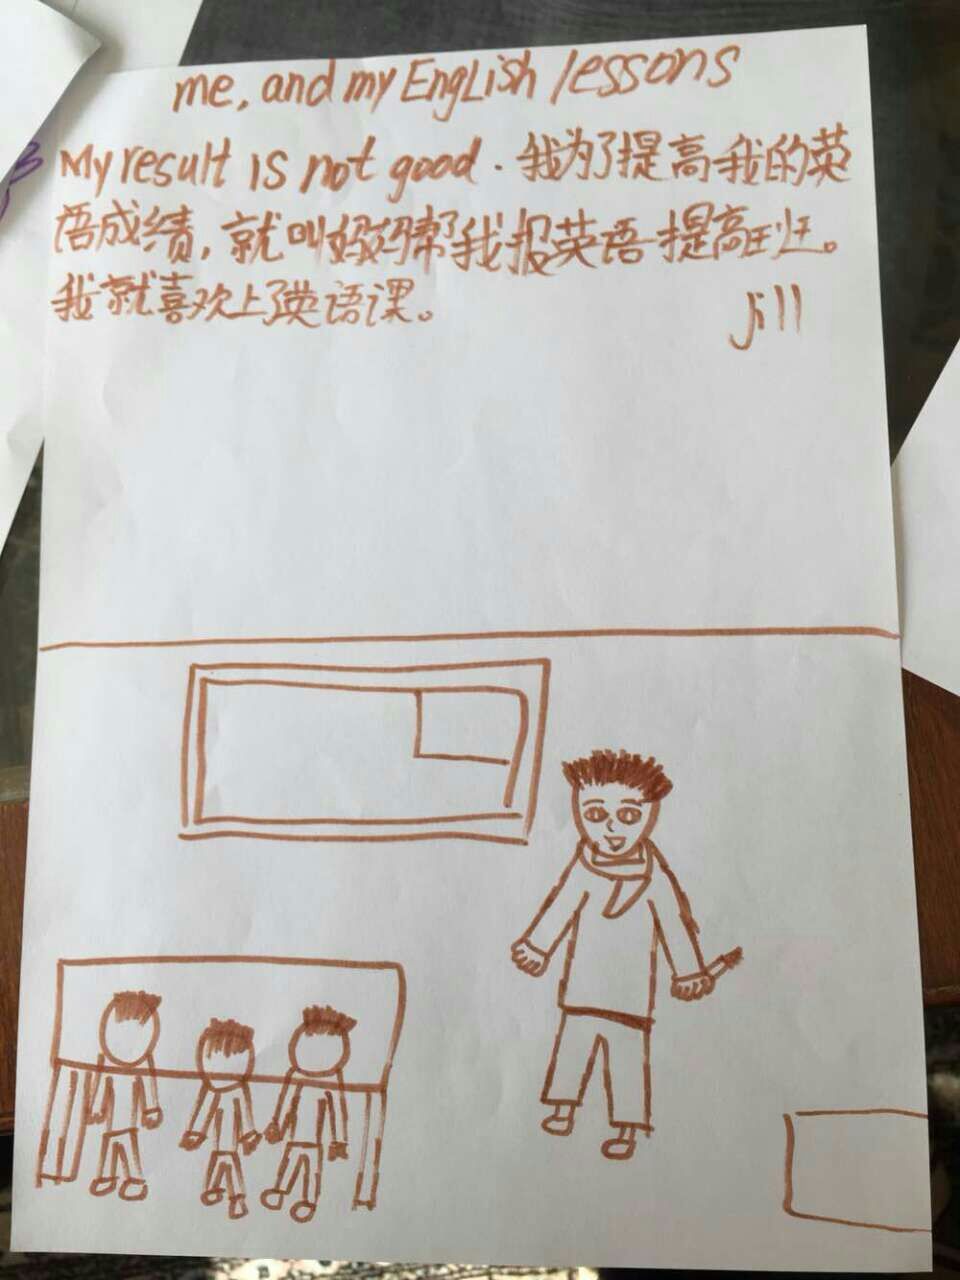 me, and my English lessons
My result is not good. 我为了提高我的英
语成绩，就叫妈妈帮我报英语提高班。
我就喜欢上了英语课。
jill